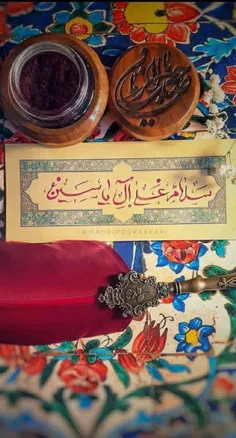 سلامٌ علی آل یاسین
@MAHDIPOURASKARI